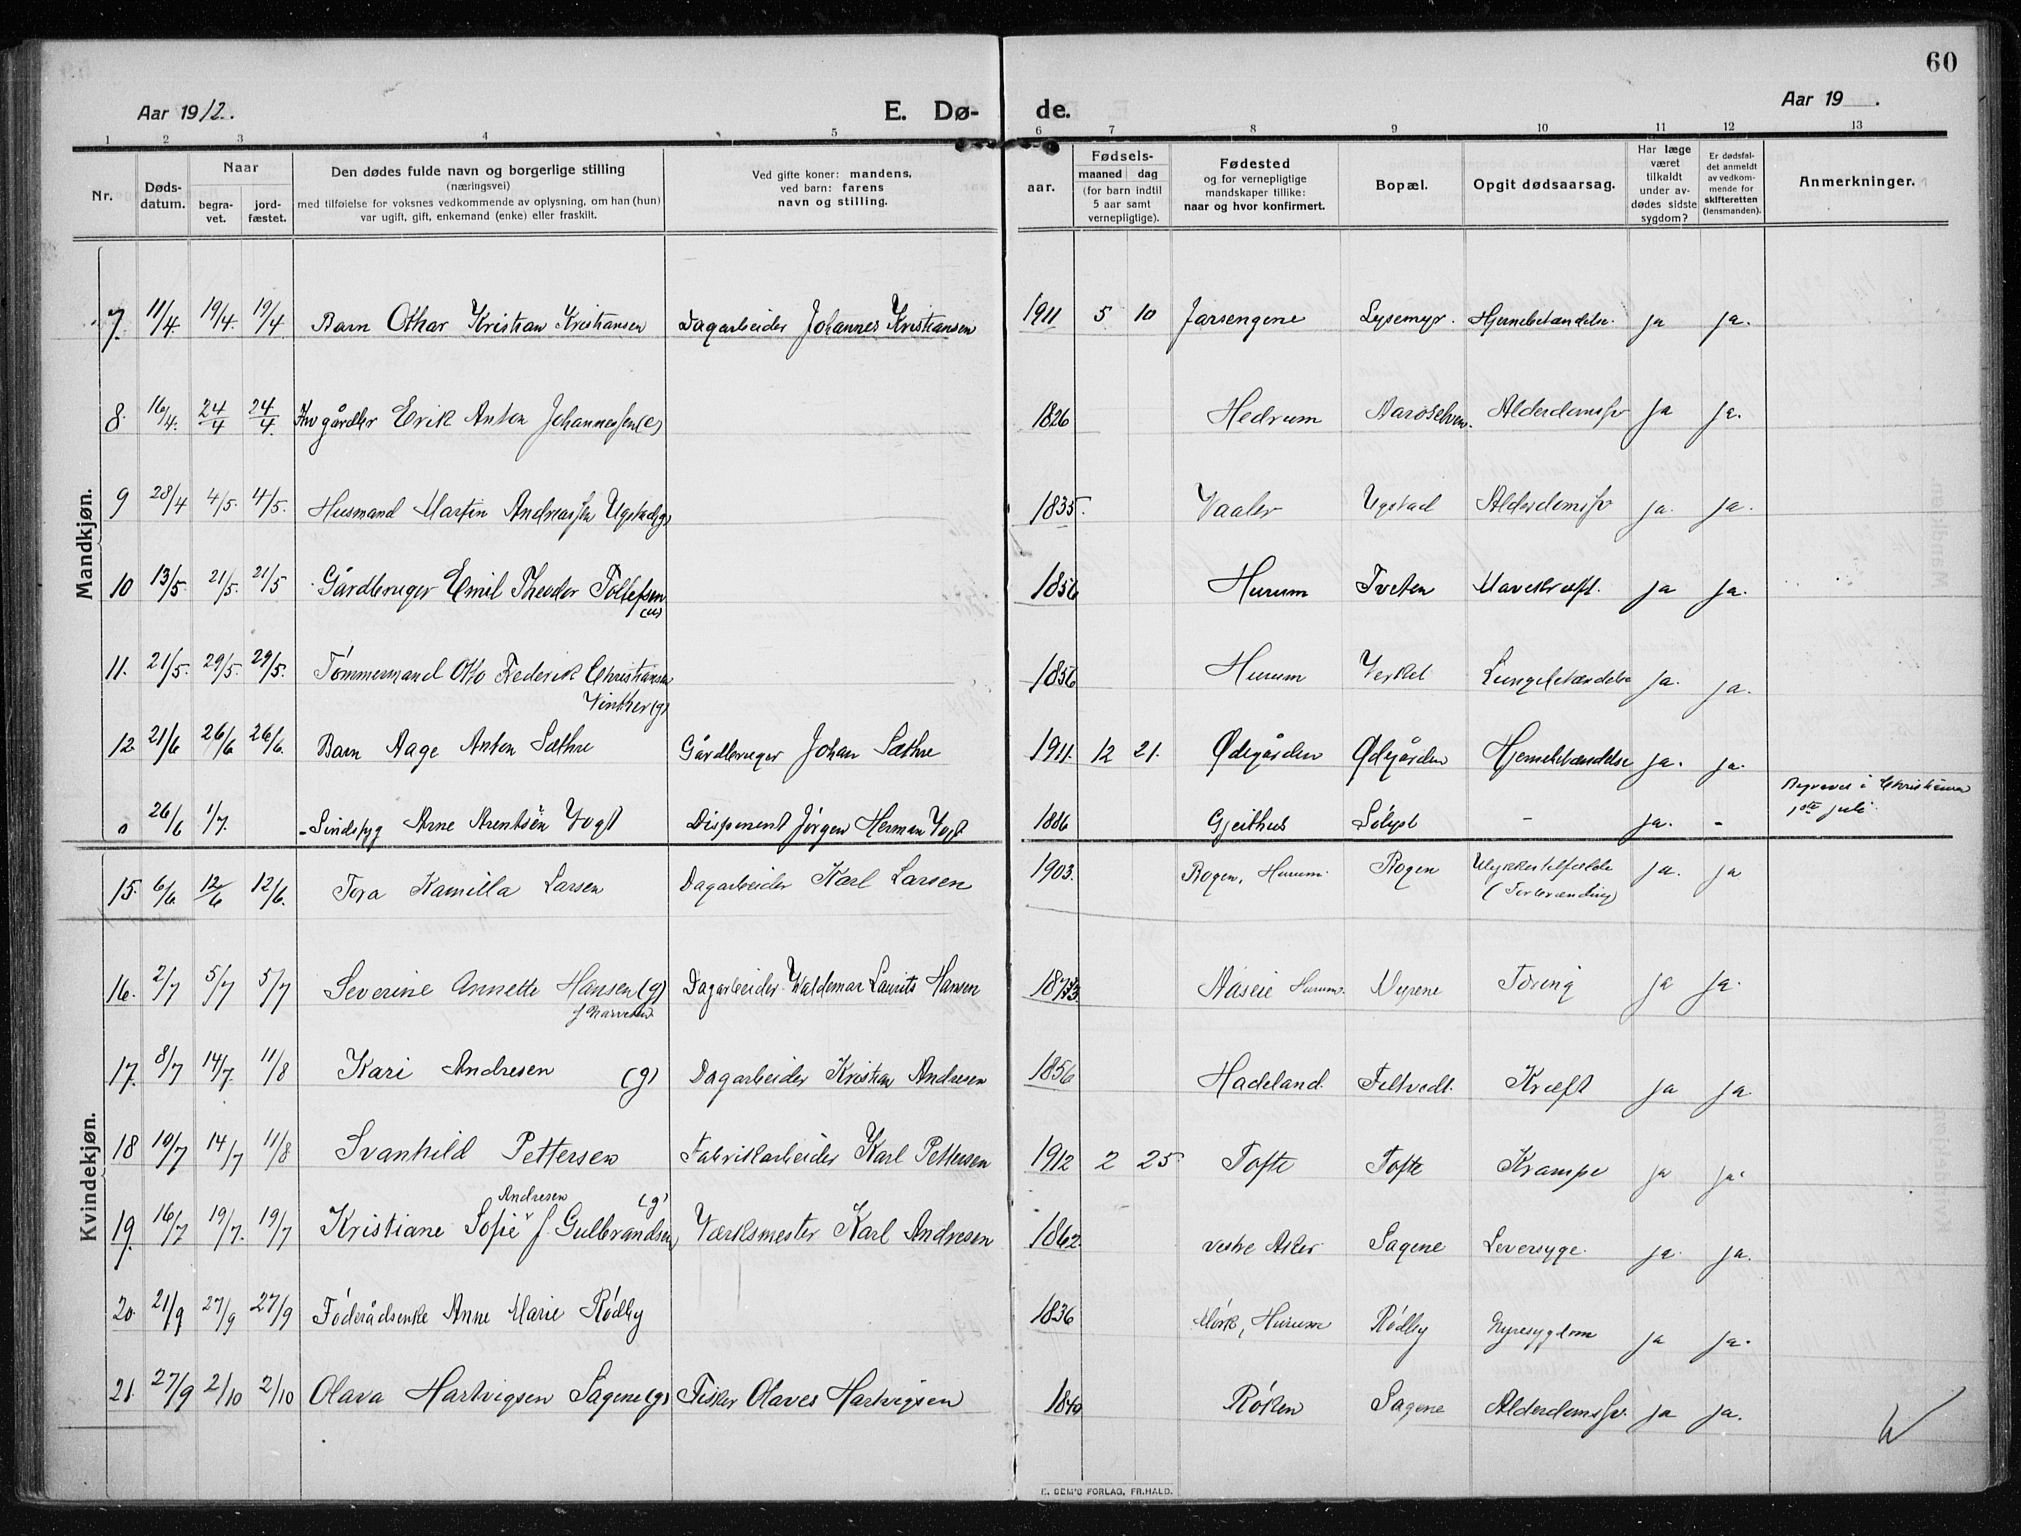 60
Aar 1912. E. Dø- de. Aar 19 .
1 2 3 4 5 6 7 8 9 10 11 12 13
Nr. Døds-datum. Naar begra-vet. jord-fæstet. Den dødes fulde navn og borgerlige stilling (næringsvei) med tilføielse for voksnes vedkommende av oplysning, om han (hun) var ugift, gift, enkemand (enke) eller fraskilt. Ved gifte koner: mandens, ved barn: farens navn og stilling. aar. Fødsels- maaned dag (for barn indtil 5 aar samt vernepligtige). Fødested og for vernepligtige mandskaper tillike: naar og hvor konfirmert. Bopæl. Opgit dødsaarsag. Har læge været tilkaldt under av-dødes sidste sygdom? Er dødsfal-det anmeldt av vedkom-mende for skifteretten (lensmanden). Anmerkninger.
Mandkjøn.
7. 11/4. 19/4. 19/4 Barn Othar Kristian Kristiansen Dagarbeider Johannes Kristiansen 1911 5 10 Jarsengene Lysemyr. Hjernebetændelse. ja ja.
8. 16/4. 24/4 24/4. gårdbr Erik Anton Johannessen (e) 1826 Hedrum Aaroselven. Alderdomssv ja ja.
9 28/4 4/5. 4/5. Husmand Martin Andreassen Ugstad (g) 1835. Vaaler Ugstad Alderdomssv ja. ja.
10 13/5. 21/5. 21/5 Gårdbruger Emil Theodor Tollefsen (u) 1856 Hurum Tveten Mavekræft. ja ja.
11. 21/5. 29/5. 29/5. Tømmermand Otto Frederik Christiansen Vinther (g) 1856 Hurum Verket Lungebetændelse ja. ja.
12 21/6 26/6 26/6. Barn Aage Anton Sæthre Gårdbruger Johan Sæthre 1911. 12 21. Ødegården Ødegården Hjernebetændelse ja. ja.
0 26/6 1/7. Sindsyg Arne Arentsen Vogt Disponent Jørgen Herman Vogt 1886 Gjeithus Sølyst - ja. - Begravet i Christiania 1ste juli.
Kvindekjøn.
15. 6/6. 12/6 12/6. Tora Kamilla Larsen Dagarbeider Karl Larsen 1903. Bogen, Hurum. Bogen Ulykkestilfælde (Forbrænding) ja. ja
16. 2/7 5/7 5/7 Severine Annette Hansen (g) Dagarbeider Waldemar Laurits Hansen 1873 Aaseie Hurum. Myrene Tæring ja ja.
17. 8/7 14/7. 11/8 Kari Andresen (g) Dagarbeider Kristian Andresen 1856 Hadeland. Feltvedt. Kræft ja ja
18 10/7 14/7 11/8 Svanhild Pettersen Fabrikarbeider Karl Pettersen 1912 2 25 Tofte Tofte Krampe ja ja.
19. 16/7 19/7. 19/7 Kristiane Sofie Andresen f. Gulbrandsen (g) Værksmester Karl Andresen 1862. vestre Asker Sagene Leversyge. ja. ja.
20. 21/9 27/9 27/9 Føderådsenke Anne Marie Rødby 1836 Mørk, Hurum Rødby Nyresygdom ja ja.
21. 27/9 2/10 2/10 Olava Hartvigsen Sagene (g) Fisker Olaves Hartvigsen 1840 Røken Sagene Alderdomssv. ja ja.
E. SEM'S FORLAG, FR.HALD.